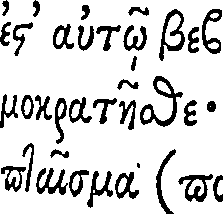 ἐϛ’ αὐτῷ βεβ
μοκρατῆσθε·
ϖλαῖσμα (ϖ